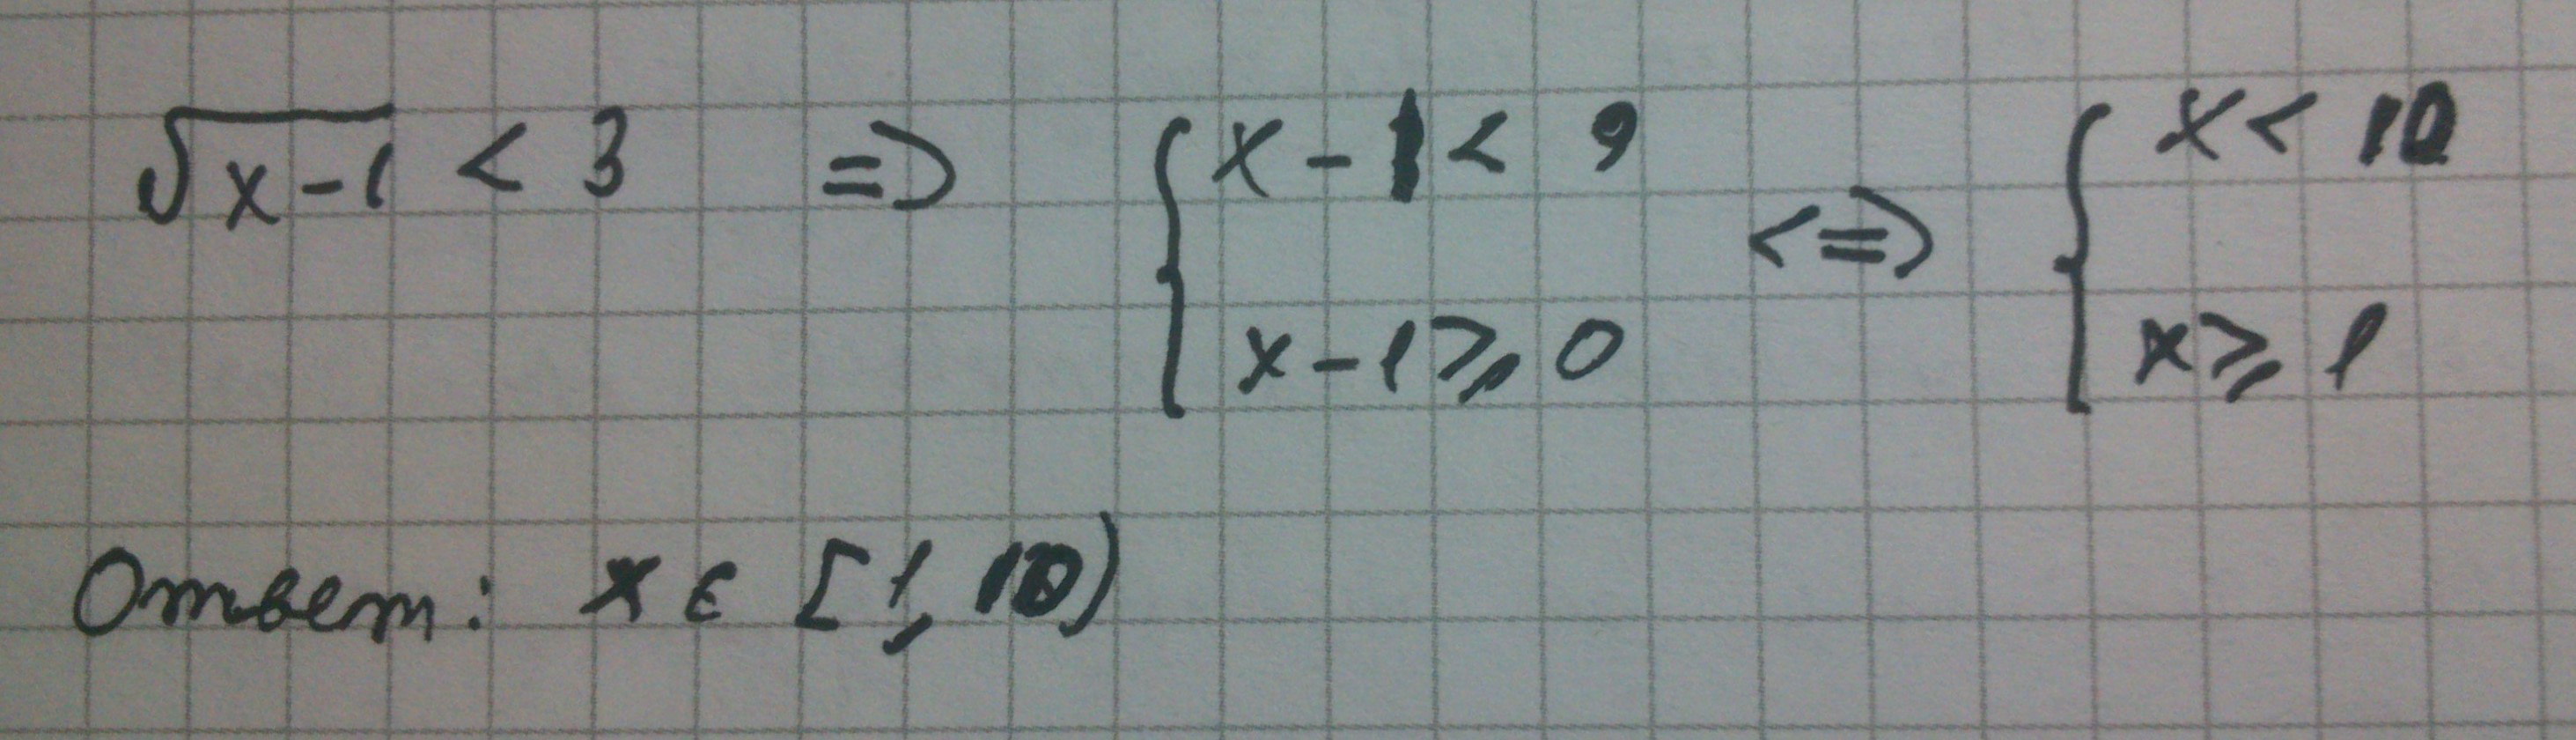 √(x-1) < 3 => { x - 1 < 9 <=> { x < 10
x - 1 ⩾ 0 x ⩾ 1
Ответ: x ∈ [1, 10)